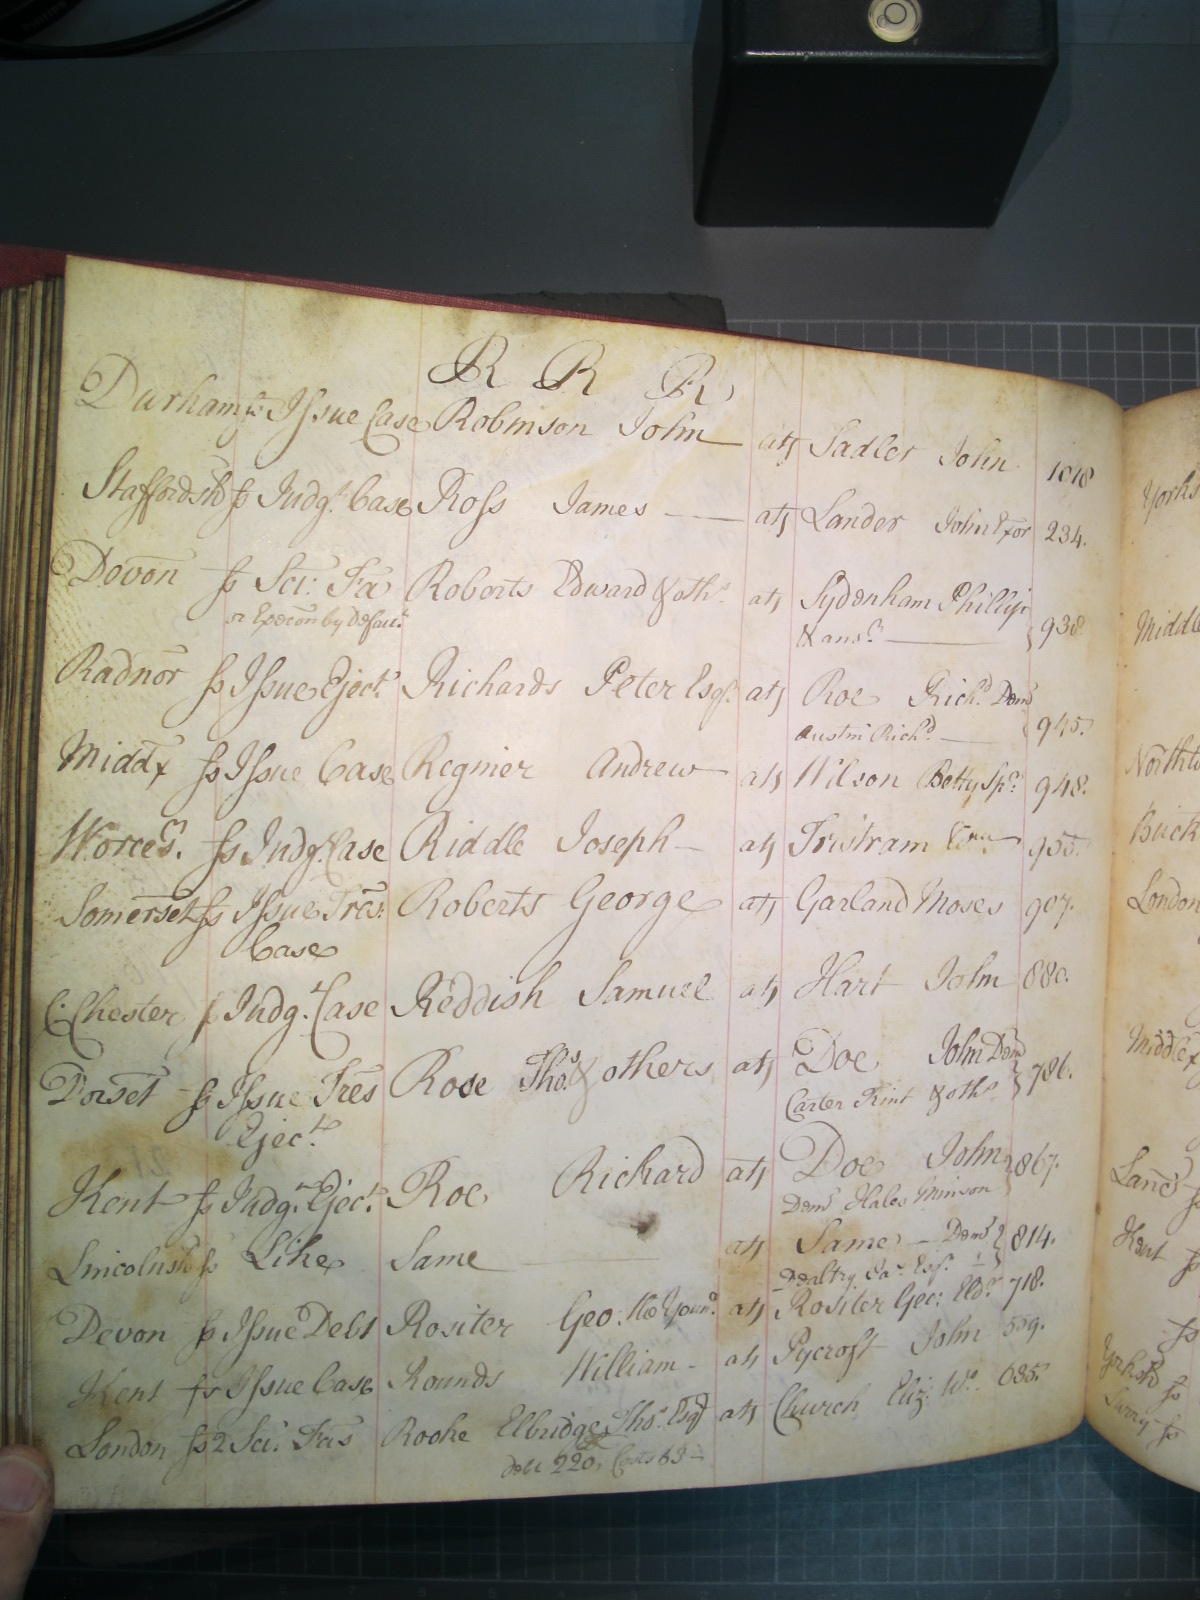 R R R
Durham ss Issue Case Robinson John ats Sadler John 1018
Staffordsh ss Judgt. Case Ross James ats Lander John Exor 234.
Devon ss Sci: Fa Roberts Edward & oths. ats Sydenham Phillip
by Defaut & anor. 938
Radnor ss Issue Eject. Richards Peter Esqr. ats Roe Richd. Dem
Austin Richd. 945.
Middx ss Issue Case Regnier Andrew ats Wilson Betty Spr. 948.
Worcesr. ss Judgt. Case Riddle Joseph ats Tristram 955.
Somerset ss Issue Tres: Roberts George ats Garland Moses 907.
Case
C: Chester ss Judgt. Case Reddish Samuel ats Hart John 880.
Dorset ss Issue Tres Rose Thos. & others ats Doe John Dem
Eject. Carter & oths 786.
Kent ss Judgt. Eject. Roe Richard ats Doe John 867.
Dem Hales Minson
Lincolnsh ss Like Same ats Same Dem 814.
Esqr.
Devon ss Issue Debt Rositer Geo. the Youngr. ats Rositer Geo: Eldr. 718.
Kent ss Issue Case Rounds William ats Pycroft John 559.
London ss 2 Sci: Fas Rooke Elbridge Thos. Esqr ats Church Eliz: Wo. 635.
Debt 220, Costs 63
Yorks
Middle
Northt
Buck
London
Middlex
Lanc
Kent ss
ss
Yorksh ss
Surry ss